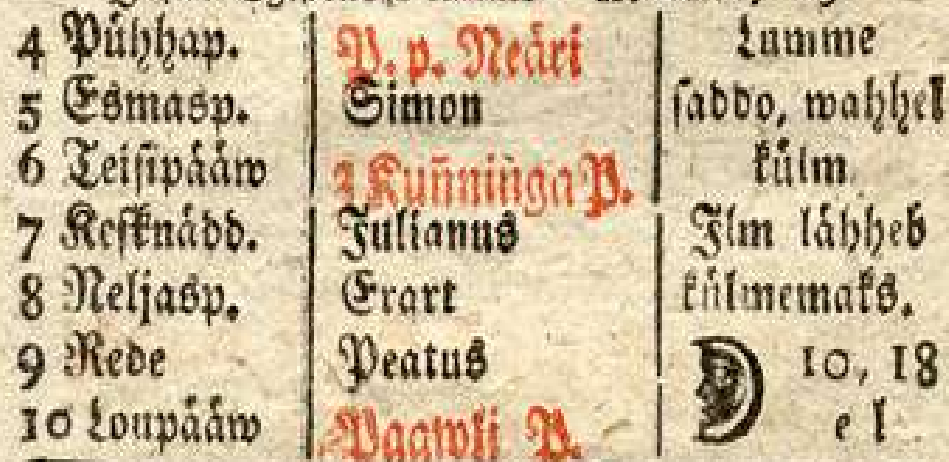 4 Pühhap. P. p. Neäri Lumme
5 Esmasp. Simon saddo, wahhel
6 Teisipääw 3 Kuñninga P. külm
7 Keſknädd. Julianus Ilm lähheb
8 Neljasp. Erart külmemaks.
9 Rede Peatus 10, 18
10 Loupääw Paawli P. e l